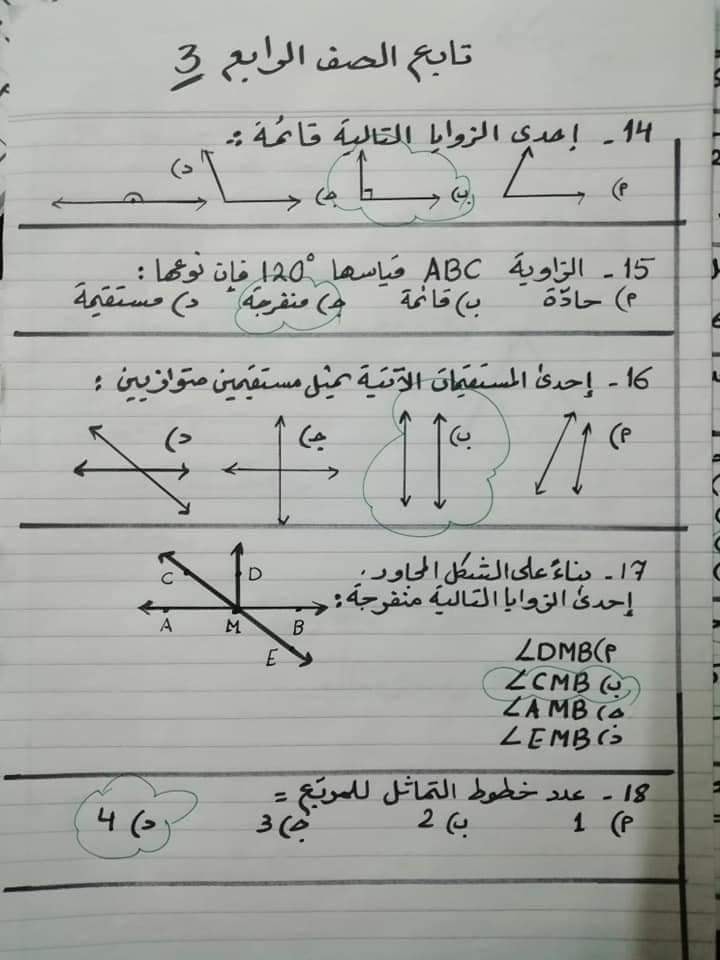 تابع الصف الرابع 3
14- إحدى الزوايا التالية قائمة :-
أ) ب) ج) د)
15- الزاوية ABC قياسها 120° فإن نوعها :
أ) حادّة ب) قائمة ج) منفرجة د) مستقيمة
16- إحدى المستقيمات الآتية يمثل مستقيمين متوازيين :
أ) ب) ج) د)
17- بناءً على الشكل المجاور،
إحدى الزوايا التالية منفرجة:
C D
A M B
E
أ) ∠DMB
ب) ∠CMB
ج) ∠AMB
د) ∠EMB
18- عدد خطوط التماثل للمربّع =
أ) 1 ب) 2 ج) 3 د) 4